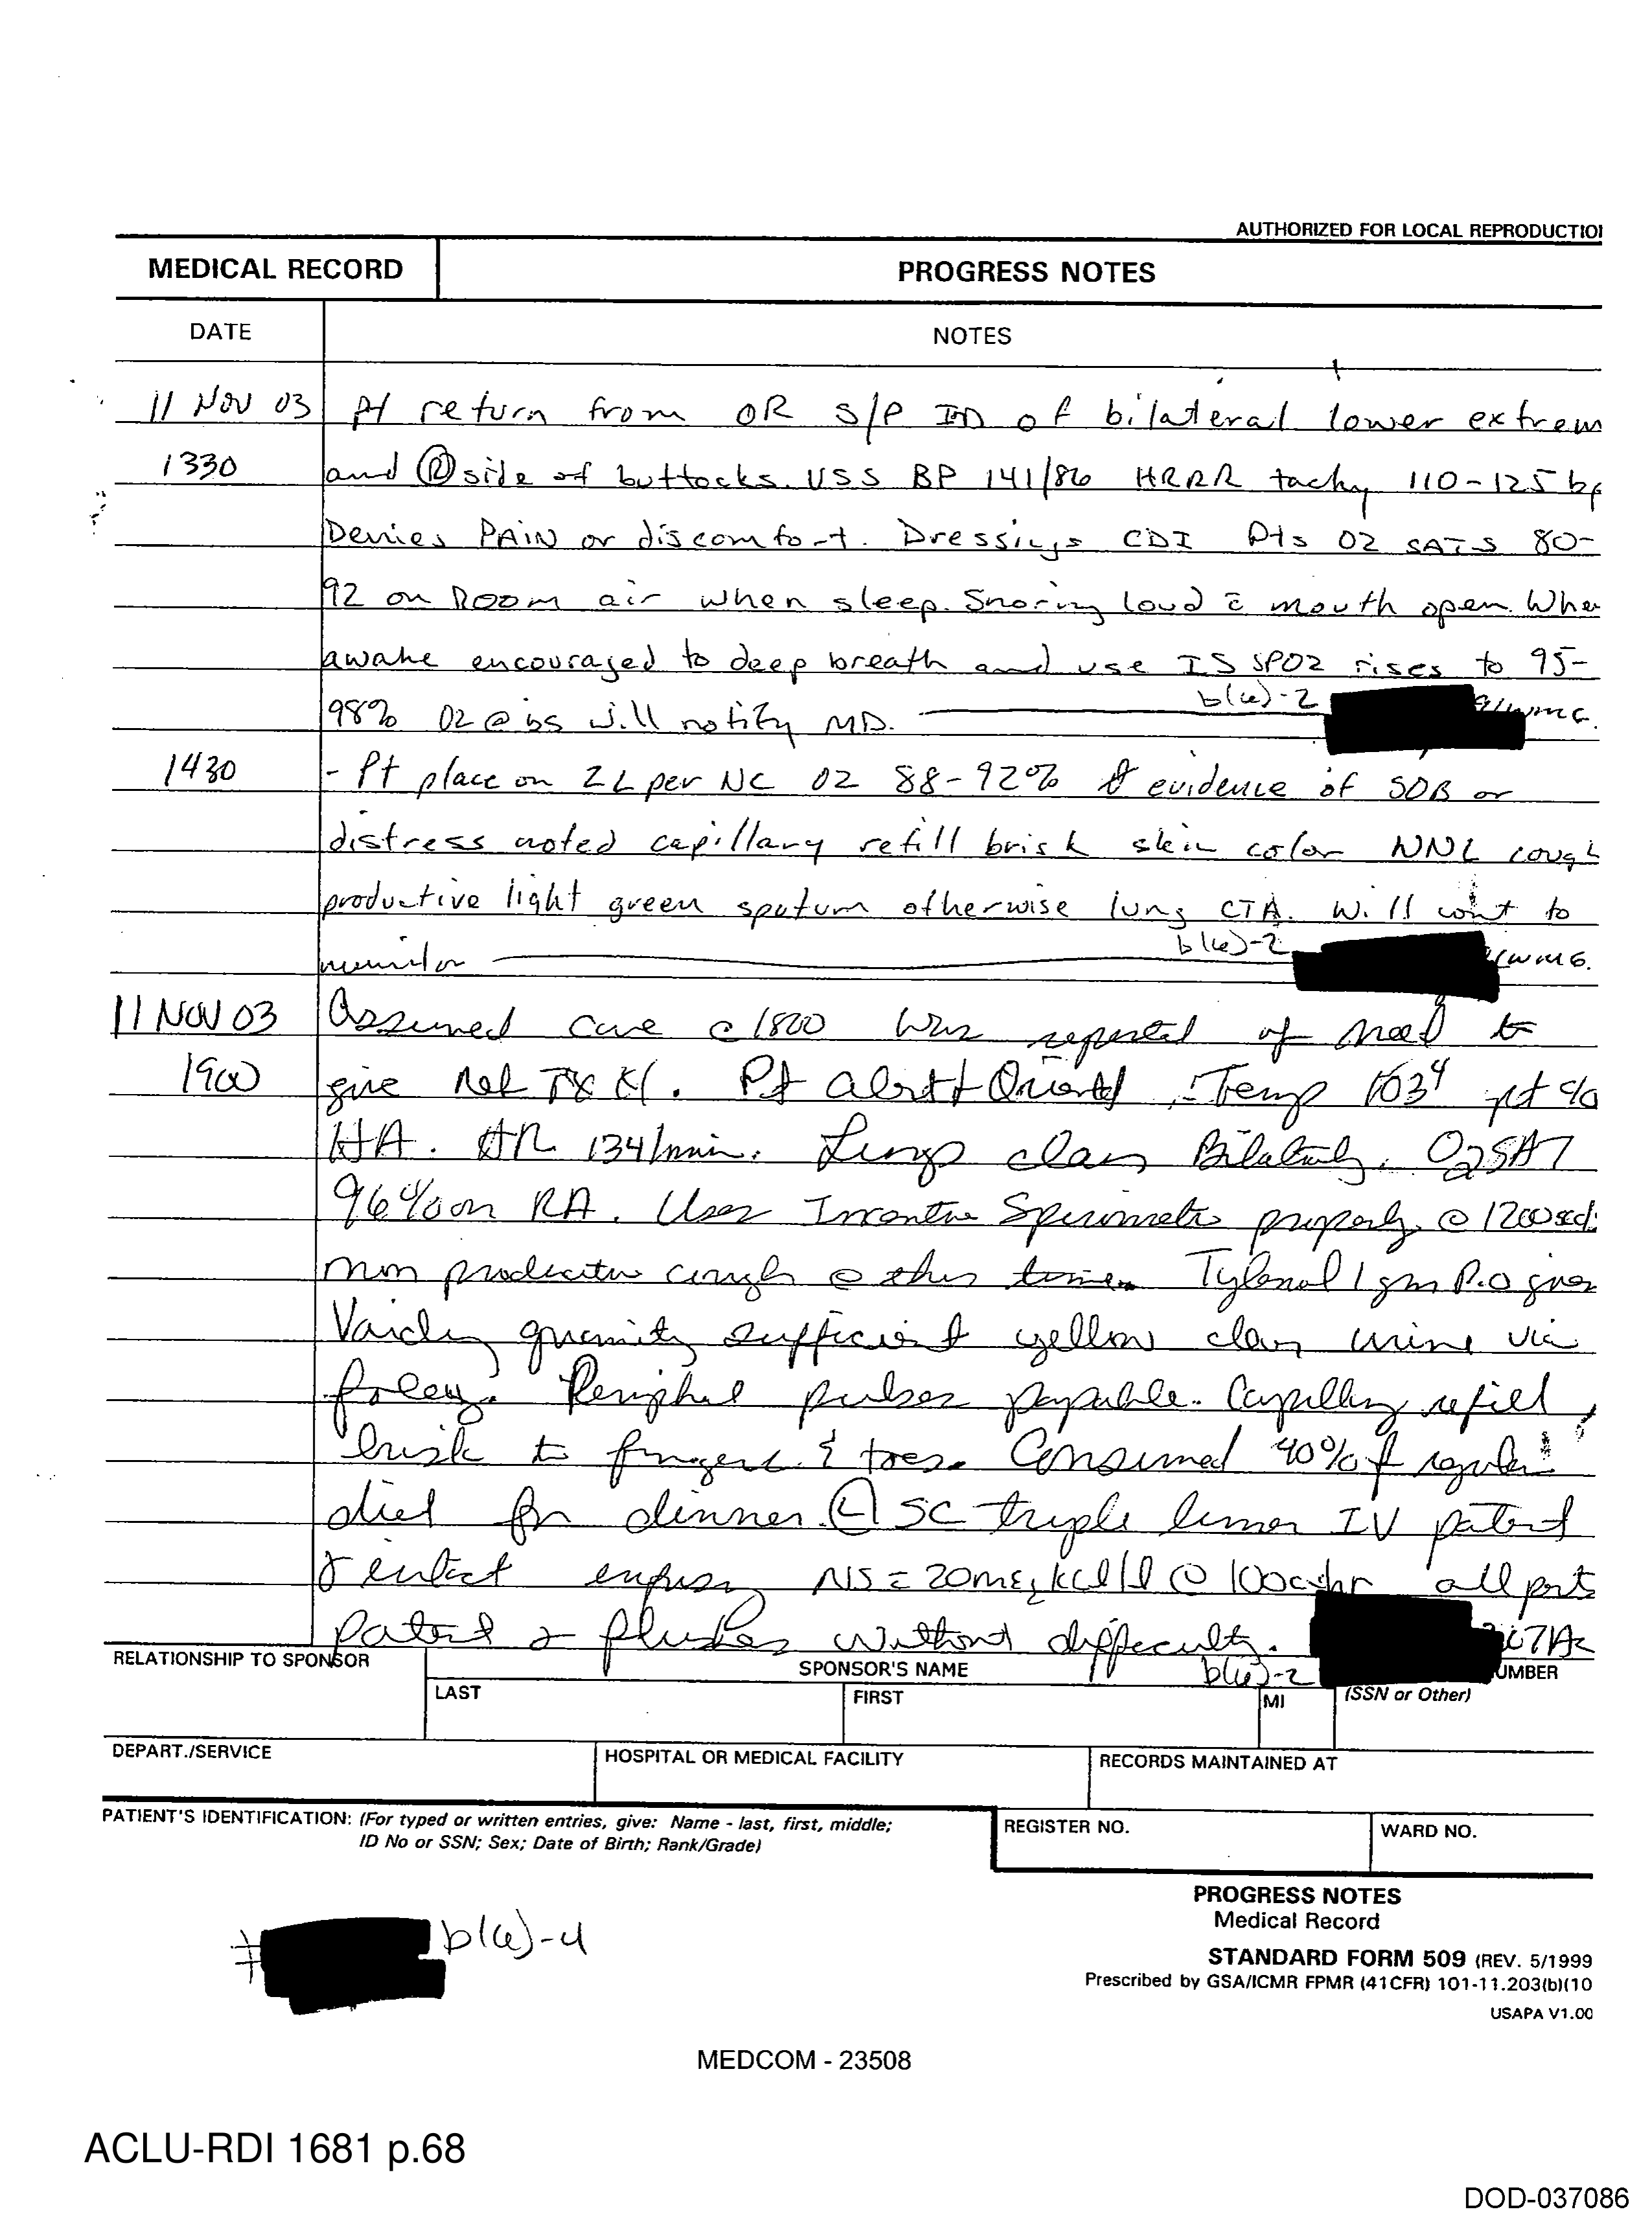 AUTHORIZED FOR LOCAL REPRODUCTIO
MEDICAL RECORD
PROGRESS NOTES
DATE
NOTES
11 NOV 03 Pt return from OR S/P ID of bilateral lower extrem
1330 and side of buttocks. VSS BP 141/86 HRRR tachy 110-125 bp
Denies PAIN or discomfort. Dressings CDI Pts O2 SATS 80-
92 on Room air when sleep. Snoring loud c̄ mouth open. Whe
awake encouraged to deep breath and use IS SPO2 rises to 95-
98% O2 @ bs will notify MD. b(6)-2
1430 - Pt place on 2L per NC O2 88-92% Ø evidence of SOB or
distress noted capillary refill brisk skin color WNL cough
productive light green sputum otherwise lung CTA. Will cont to
monitor b(6)-2
11 NOV 03 Assumed care @ 1800 Was reported of need to
1900 give Pt alert + Orient Temp 103⁴ pt c/o
HA. HR 134/min. Lungs clear Bilaterally. O2SAT
96% on RA. Uses Incentive Spirometer properly @ 1200
non productive cough @ this time. Tylenol 1 gm P.O given
Voiding quantity sufficient yellow clear urine via
foley. Peripheral pulses palpable. Capillary refill
brisk to fingers & toes. Consumed 40% of regular
diet for dinner. Ⓛ SC triple lumen IV patent
& intact infusing NS c̄ 20meq kcl/l @ 100cc/hr all ports
patent & flushes without difficulty.
RELATIONSHIP TO SPONSOR
SPONSOR'S NAME
b(6)-2
UMBER
LAST
FIRST
MI
(SSN or Other)
DEPART./SERVICE
HOSPITAL OR MEDICAL FACILITY
RECORDS MAINTAINED AT
PATIENT'S IDENTIFICATION: (For typed or written entries, give: Name - last, first, middle;
ID No or SSN; Sex; Date of Birth; Rank/Grade)
REGISTER NO.
WARD NO.
PROGRESS NOTES
Medical Record
STANDARD FORM 509 (REV. 5/1999
Prescribed by GSA/ICMR FPMR (41CFR) 101-11.203(b)(10
USAPA V1.00
# b(6)-4
MEDCOM - 23508
ACLU-RDI 1681 p.68
DOD-037086